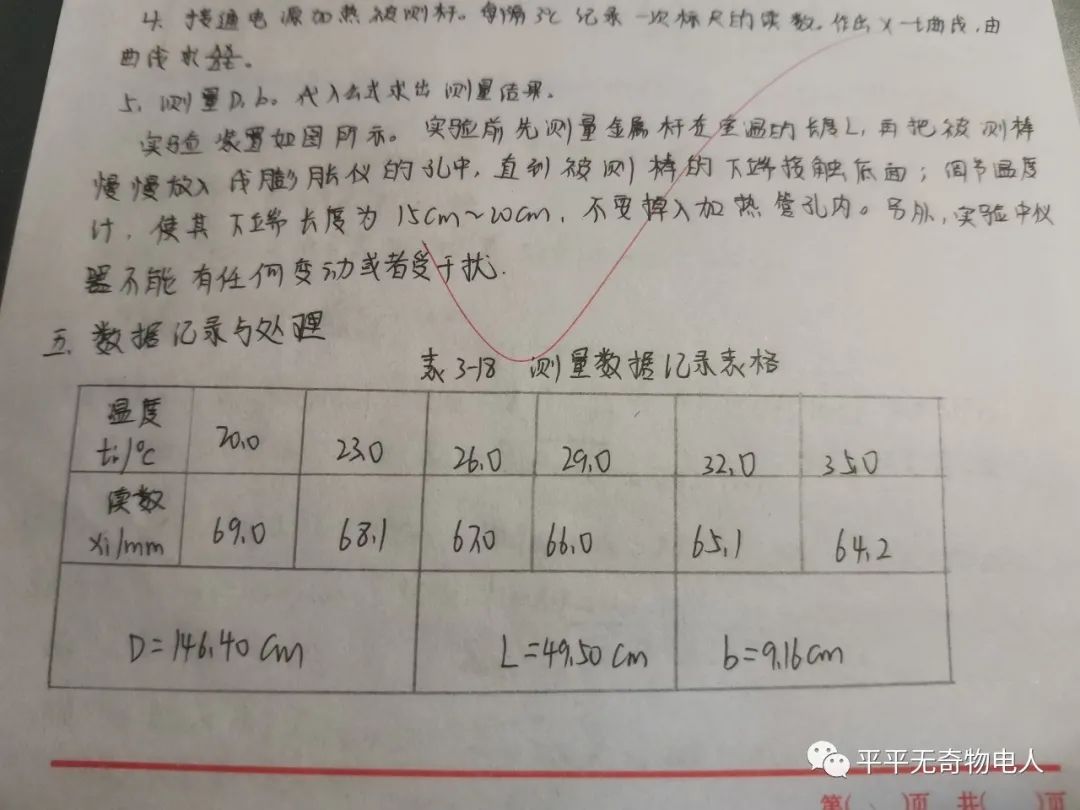 4. 接通电源加热被测杆。每隔3℃记录一次标尺的读数。作出x-t曲线,由
曲线求Δx/Δt。
5. 测量D、b。代入公式求出测量结果。
实验装置如图所示。实验前先测量金属杆在室温的长度L,再把被测棒
慢慢放入线膨胀仪的孔中,直到被测棒的下端接触底面;调节温度
计,使其下端长度为15cm~20cm,不要掉入加热管孔内。另外,实验中仪
器不能有任何变动或者受干扰.
五. 数据记录与处理
表3-18 测量数据记录表格
温度 ti/℃ 20.0 23.0 26.0 29.0 32.0 35.0
读数 xi/mm 69.0 68.1 67.0 66.0 65.1 64.2
D=146.40cm L=49.50cm b=9.16cm
平平无奇物电人
第( )页 共( )页